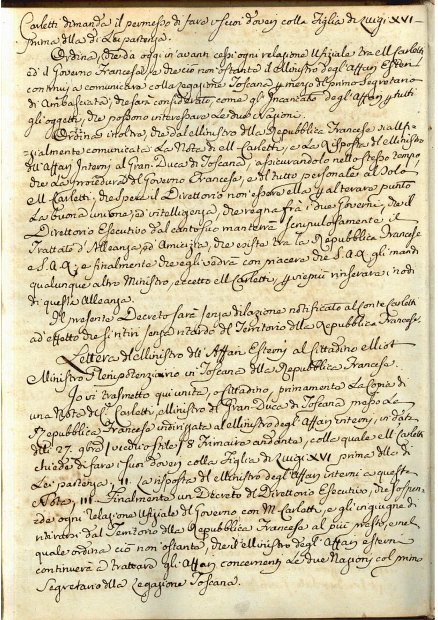 Carletti dimanda il permesso di fare i suoi doveri colla Figlia di Luigi XVI
prima della di Lei partenza.
Ordina, che da oggi in avanti cessi ogni relazione Ufiziale tra M. Carletti
ed il Governo Francese, e che ciò non ostante il Ministro degl'Affari Esteri
continui a comunicare colla Legazione Toscana p. mezzo del primo Segretario
di Ambasciata, che sarà considerato, come gl'Incaricato degl'Affari, p. tutti
gli oggetti, che possono interessare Le due Nazioni.
Ordina inoltre, che dal Ministro della Repubblica Francese sia Uffi-
zialmente comunicata La Nota di M. Carletti, e La Risposta del Ministro
dell'Affari Interni al Gran-Duca di Toscana, assicurandolo nello stesso tempo,
che La procedura del Governo Francese, è del tutto personale al Solo
M. Carletti; che spera il Direttorio non essere ella p. alterare punto
La buona unione, ed intelligenza, che regna frà i due Governi, che il
Direttorio Esecutivo dal canto suo manterrà scrupulosamente il
Trattato d'Alleanza, ed Amicizia, che esiste tra La Repubblica Francese
e S.A.R., e finalmente che egli vedrà con piacere che S.A.R. gli mandi
qualunque altro Ministro, eccetto M. Carletti, p. viepiù rinserrare i nodi
di questa Alleanza.
Il presente Decreto sarà senza dilazione notificato al Conte Carletti
ad effetto che si ritiri senza ritardo dal Territorio della Repubblica Francese.
Lettera del Ministro dell'Affari Esterni al Cittadino Miot
Ministro Plenipotenziario in Toscana della Repubblica Francese.
Io vi trasmetto qui unita, o Cittadino, primamente La Copia di
una Nota del S. Carletti, Ministro del Gran-Duca di Toscana presso La
Repubblica Francese indirizzata al Ministro degl'Affari interni, in data
dell 27. 9bre (vecchio stile) 8 Frimaire andante, colla quale M. Carletti
chiede di fare i suoi doveri colla Figlia di Luigi XVI prima della di
Lei partenza, II. La risposta del Ministro degl'Affari interni a questa
Nota, III. Finalmente un Decreto del Direttorio Esecutivo, che sospen-
de ogni relazione Ufiziale del Governo con M. Carletti, e gl'ingiugne di
ritirarsi dal Territorio della Repubblica Francese al più presto, e nel
quale ordina ciò non ostante, che il Ministro degl'Affari esterni
continuerà a trattare gl'Affari concernenti Le due Nazioni col primo
Segretario della Legazione Toscana.